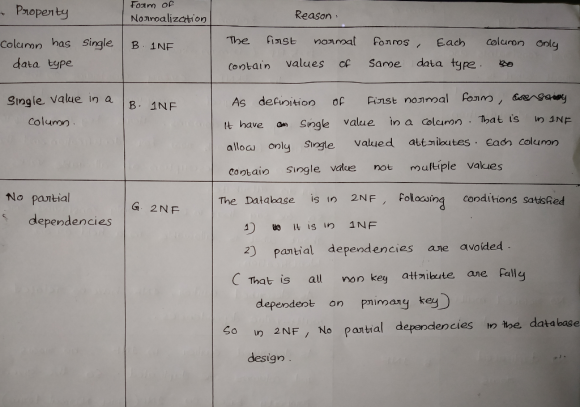 Property
Form of
Normalization
Reason.
Column has single
data type
B. 1NF
The first normal forms, Each column only
contain values of same data type.
Single value in a
column.
B. 1NF
As definition of First normal form,
It have single value in a column. That is in 1NF
allow only single valued attributes. Each column
contain single value not multiple values
No partial
dependencies
G. 2NF
The Database is in 2NF, following conditions satisfied
1) It is in 1NF
2) partial dependencies are avoided.
( That is all non key attribute are fully
dependent on primary key)
So in 2NF, No partial dependencies in the database
design.